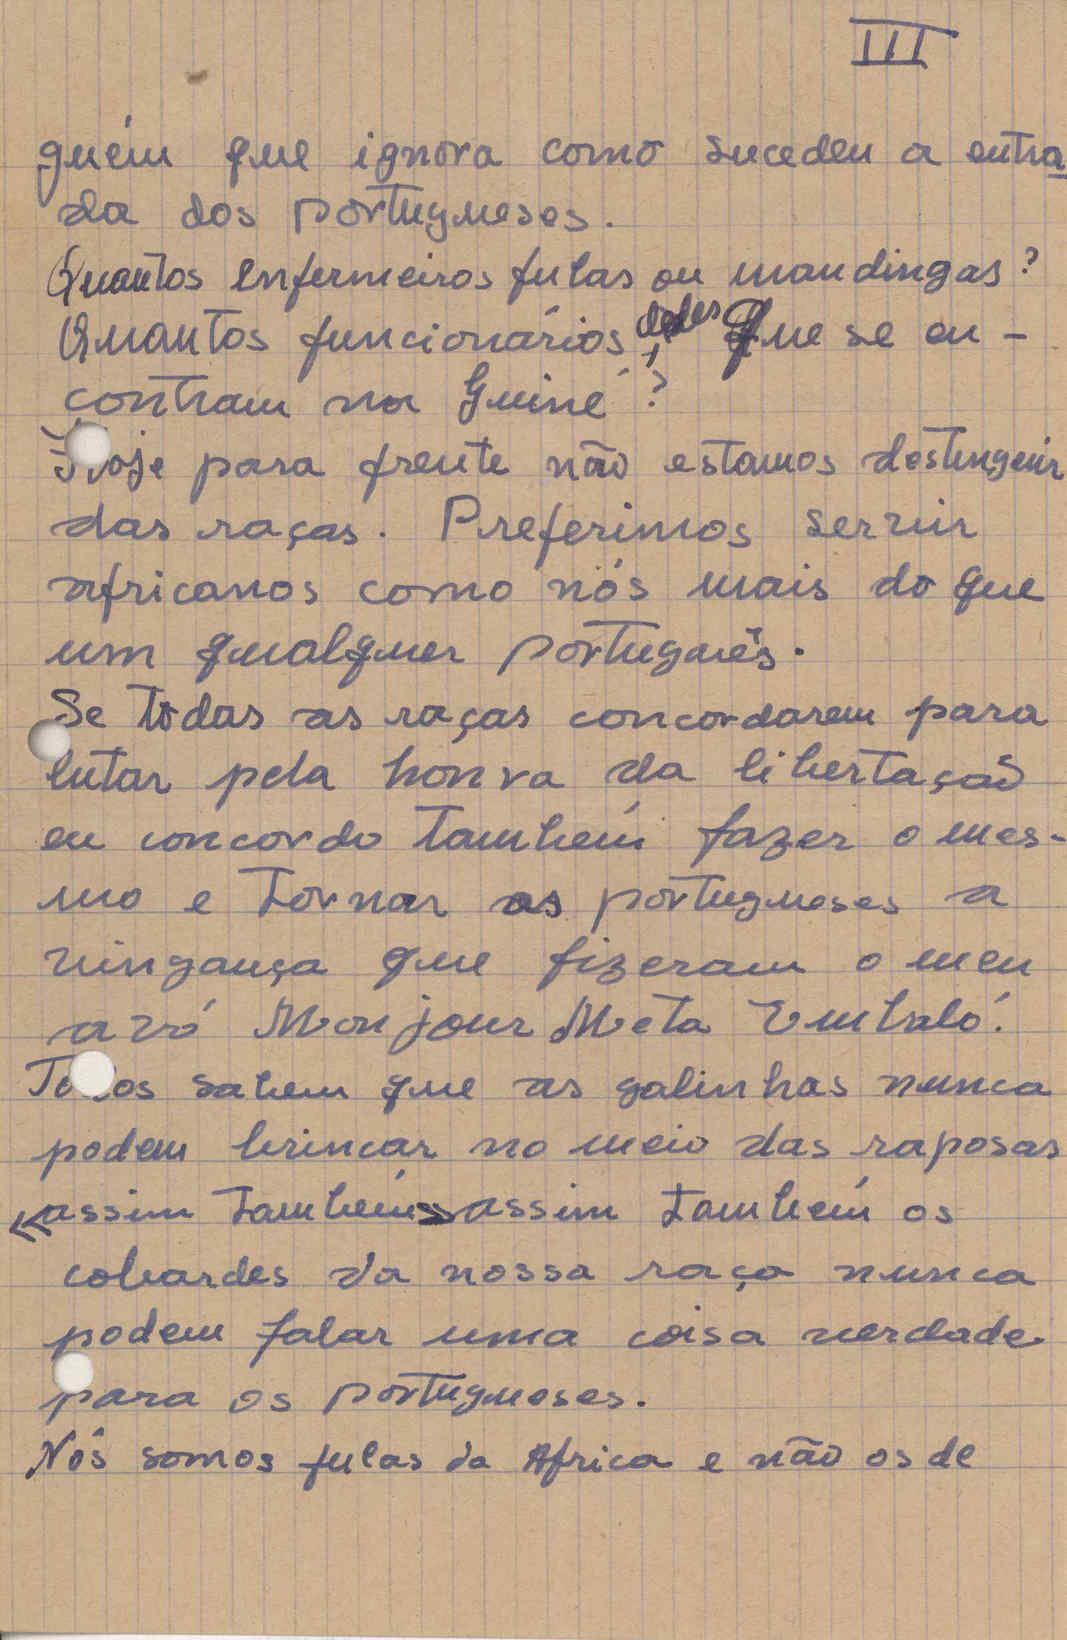 III
guém que ignora como sucedeu a entra
da dos portugueses.
Quantos enfermeiros fulas ou mandingas?
Quantos funcionários, deles que se en-
contram na Guiné?
Hoje para frente não estamos destinguir
das raças. Preferimos servir
africanos como nós mais do que
um qualquer português.
Se todas as raças concordarem para
lutar pela honra da libertação
eu concordo também fazer o mes-
mo e tornar os portugueses a
vingança que fizeram o meu
avó Monjour Meta Embaló.
Todos sabem que as galinhas nunca
podem brincar no meio das raposas
«assim também» assim também os
cobardes da nossa raça nunca
podem falar uma coisa verdade
para os portugueses.
Nós somos fulas da Africa e não os de